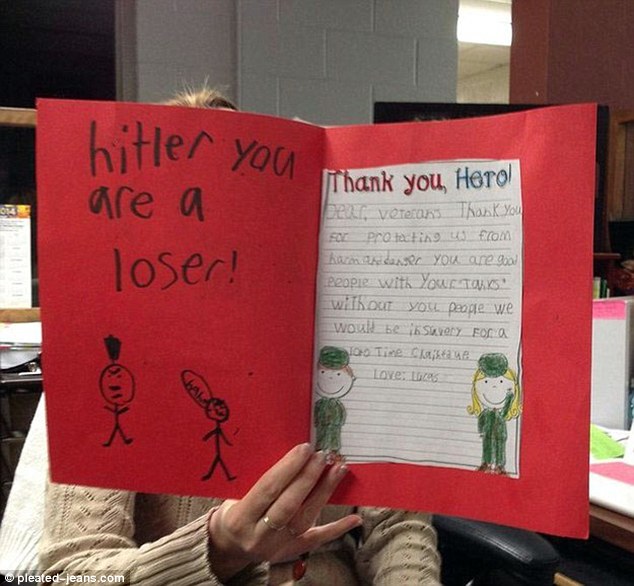 hitler you
are a
loser!
haha
Thank you, Hero!
Dear, veterans Thank you
for protecting us from
harm and danger you are good
people with your Tanks!
without you people we
would be in slavery for a
long Time
Love: Lucas
© pleated-jeans.com